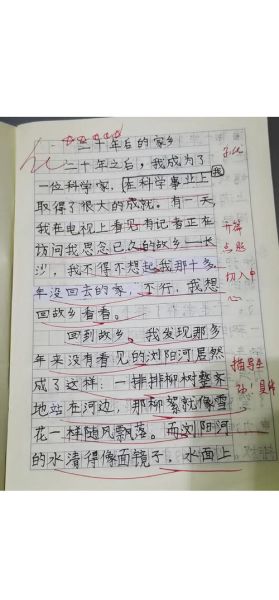 二十年后的家乡
二十年之后，我成为了
一位科学家，在科学事业上
我
取得了很大的成就。有一天，
我在电视上看见有记者正在
访问我思念已久的故乡——长
沙，我不得不想起我那十多
年没回去的家，不行，我想
回故乡看看。
开篇
点题
切入中
心
回到故乡，我发现那多
年来没有看见的浏阳河居然
成了这样：一排排柳树整齐
地站在河边，那柳絮就像雪
花一样随风飘落。而浏阳河
的水清得像面镜子，水面上
描写生